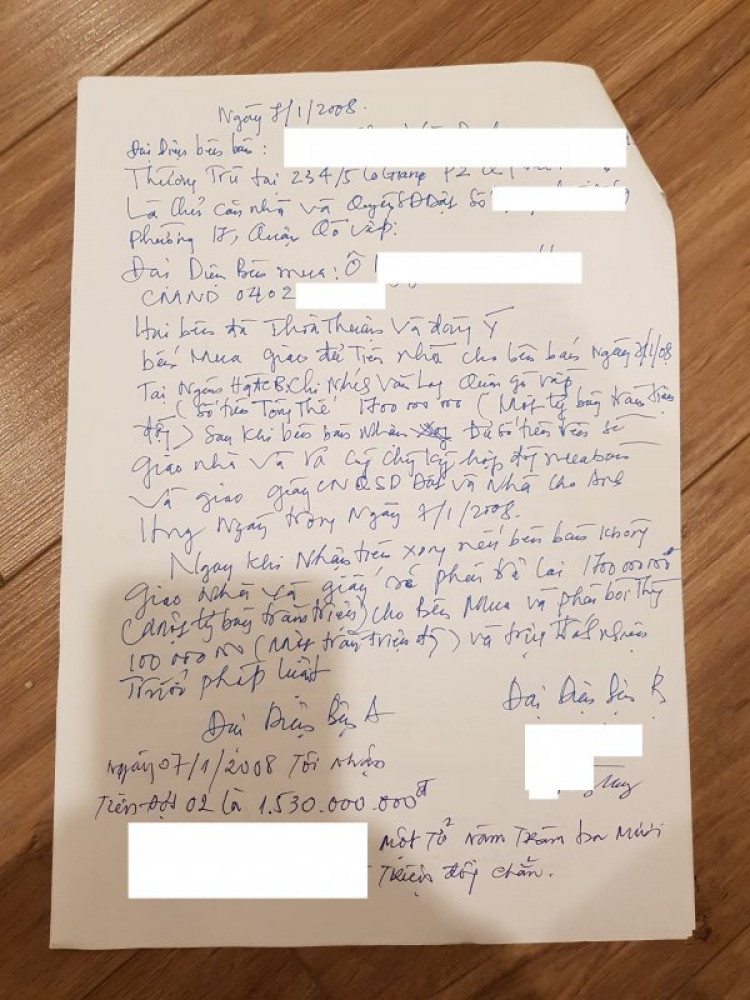 Ngày 7/1/2008.
Đại Diện bên bán:
Thường Trú tại 234/5 Cô Giang P2
Là Chủ căn nhà và Quyền SD Đất Số
phường 17, Quận Gò Vấp.
Đại Diện Bên mua: Ô
CMND 0202
Hai bên đã Thoả Thuận Và đồng Ý
bên Mua giao đủ Tiền Nhà cho bên bán Ngày 7/1/08
Tại Ngân Hg ACB. Chi Nhánh Văn Lang Quận gò vấp
(Số tiền Tổng Thể 1700 000 000 (Một tỷ bảy trăm triệu
đồng) Sau khi bên bán Nhận đủ số tiền trên sẽ
giao nhà và ký hợp đồng mua bán
Và giao giấy CN QSD Đất và Nhà cho Anh
Hưng Ngay trong Ngày 7/1/2008.
Ngay khi Nhận tiền xong nếu bên bán không
giao Nhà và giấy phải trả lại 1700 000 000đ
(Một tỷ bảy trăm triệu) cho Bên Mua và phải bồi Thường
100 000 000 (Một trăm triệu đồng) và trách nhiệm
Trước pháp luật
Đại Diện Bên B
Đại Diện Bên A
Ngày 07/1/2008 Tôi Nhận
Tiền đợt 02 là 1.530.000.000đ
Một Tỷ năm Trăm ba mươi
Triệu đồng chẵn.